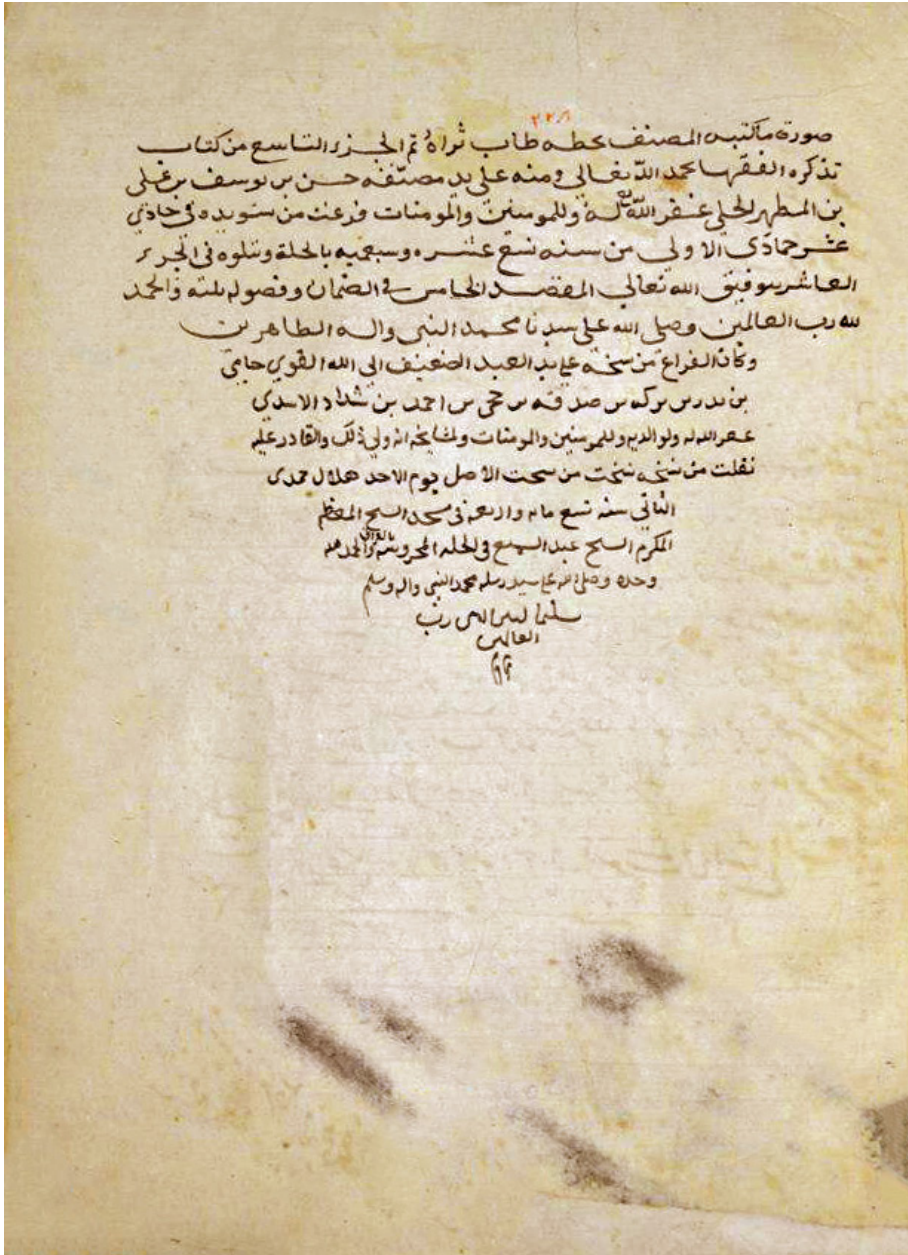 ٢٢٨
صورة ماكتبه المصنف بخطه طاب ثراه تم الجزء التاسع من كتاب
تذكره الفقها بحمد الله تعالي ومنه علي يد مصنفه حسن بن يوسف بن علي
بن المطهر الحلي غفر الله تع له وللمومنين والمومنات فرغت من تسويده في حادي
عشر جمادي الاولي من سنه تسع عشره وسبعميه بالحلة ويتلوه في الجزء
العاشر بتوفيق الله تعالي المقصد الخامس في الضمان وفصوله ثلثه والحمد
لله رب العالمين وصلي الله علي سيدنا محمد النبي واله الطاهرين
وكان الفراغ من نسخه علي يد العبد الضعيف الي الله القوي
بن بدر بن بركه بن صدقه بن حجي بن احمد بن شداد الاسدي
غفر الله له ولوالديه وللمومنين والمومنات ولمشايخه انه ولي ذلك والقادر عليه
نقلت من نسخه نسخت من نسخت الاصل يوم الاحد هلال جمدي
الثاني سنه تسع مايه واربعه في مسجد الشيخ المعظم
المكرم الشيخ عبد السميع في الحله المحروسه والحمد لله
وحده وصلي الله علي سيد رسله محمد النبي واله وسلم
تسليما رب
العالمين